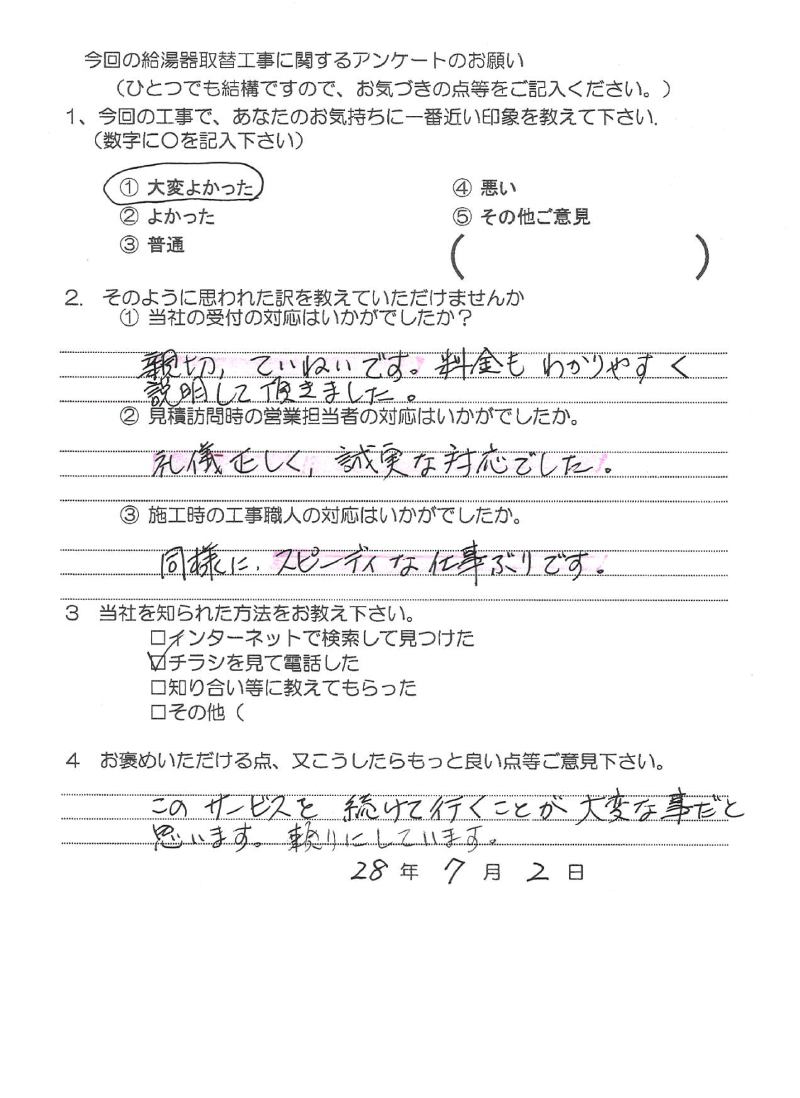 今回の給湯器取替工事に関するアンケートのお願い
（ひとつでも結構ですので、お気づきの点等をご記入ください。）
1、今回の工事で、あなたのお気持ちに一番近い印象を教えて下さい.
（数字に〇を記入下さい）
① 大変よかった
② よかった
③ 普通
④ 悪い
⑤ その他ご意見
（ ）
2. そのように思われた訳を教えていただけませんか
① 当社の受付の対応はいかがでしたか？
親切, ていねいです。料金も わかりやすく
説明して頂きました。
② 見積訪問時の営業担当者の対応はいかがでしたか。
礼儀正しく, 誠実な対応でした。
③ 施工時の工事職人の対応はいかがでしたか。
同様に. スピーディな仕事ぶりです。
3 当社を知られた方法をお教え下さい。
□インターネットで検索して見つけた
☑チラシを見て電話した
□知り合い等に教えてもらった
□その他（
4 お褒めいただける点、又こうしたらもっと良い点等ご意見下さい。
このサービスを 続けて行くことが 大変な事だと
思います。頼りにしています。
28 年 7 月 2 日